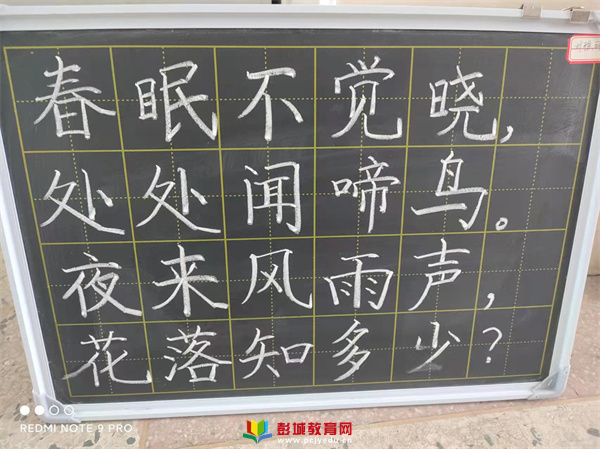 春眠不觉晓,
处处闻啼鸟。
夜来风雨声,
花落知多少?
REDMI NOTE 9 PRO
彭城教育网
www.pcjyedu.cn